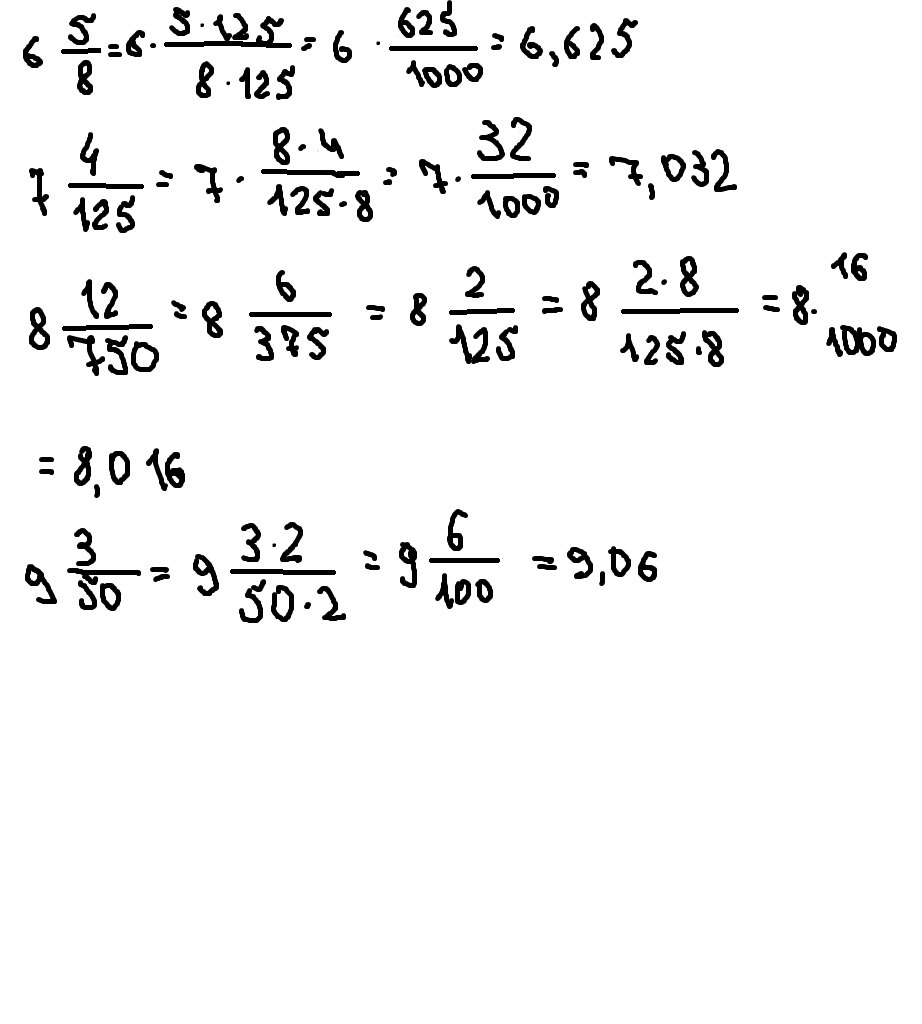 6 5/8 = 6 · 5·125/8·125 = 6 · 625/1000 = 6,625
7 4/125 = 7 · 8·4/125·8 = 7 · 32/1000 = 7,032
8 12/750 = 8 6/375 = 8 2/125 = 8 2·8/125·8 = 8· 16 1000
= 8,016
9 3/50 = 9 3·2/50·2 = 9 6/100 = 9,06